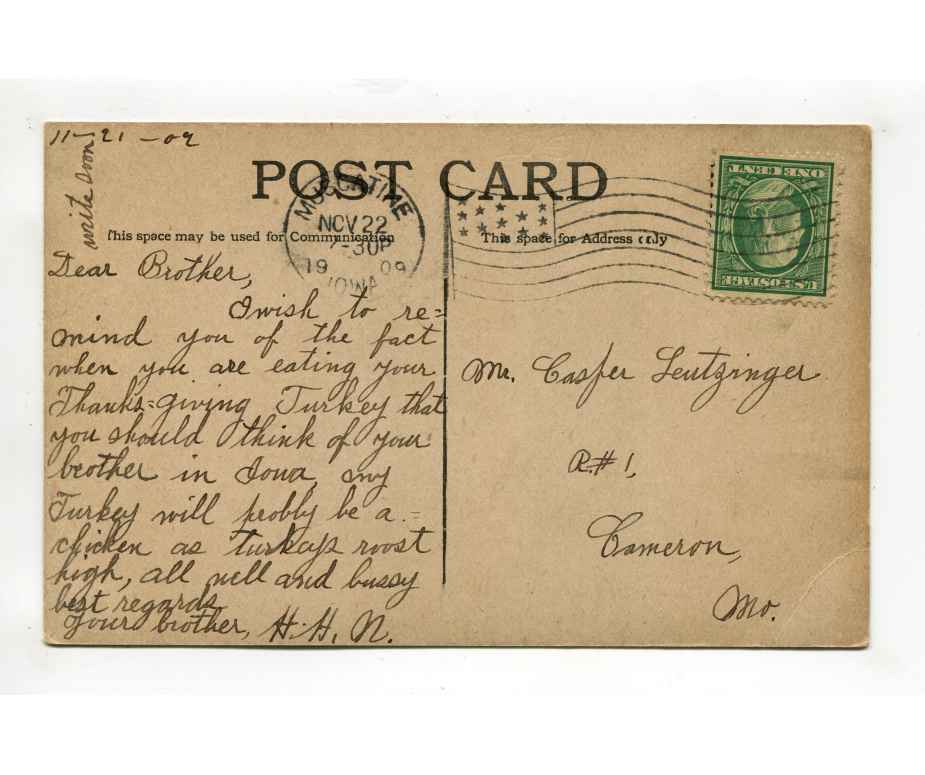 11-21-09
write soon
POST CARD
MUSCATINE
NOV 22
-30P
19 09
IOWA
This space may be used for Communication
This space for Address only
ONE CENT
U.S. POSTAGE
Dear Brother,
I wish to re=
mind you of the fact
when you are eating your
Thanks=giving Turkey that
you should think of your
brother in Iowa, my
Turkey will probly be a =
chicken as turkays roost
high, all well and bussy
best regards
Your brother, H. H. N.
Mr. Casper Leutzinger
R.# 1,
Cameron,
Mo.